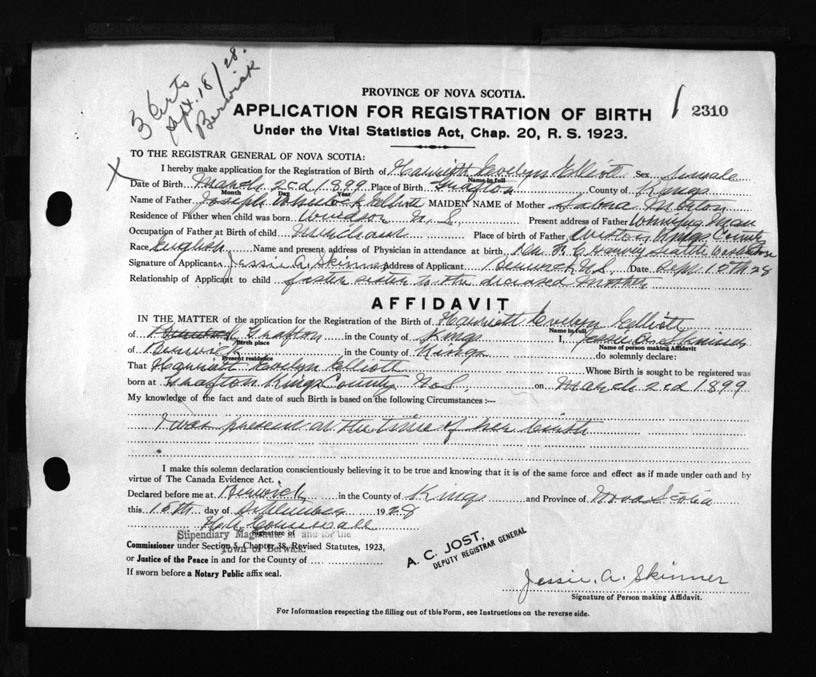 3 Certs
Sept. 18/28.
Berwick
PROVINCE OF NOVA SCOTIA.
2310
APPLICATION FOR REGISTRATION OF BIRTH
Under the Vital Statistics Act, Chap. 20, R. S. 1923.
TO THE REGISTRAR GENERAL OF NOVA SCOTIA:
I hereby make application for the Registration of Birth of Harriott Evelyn Elliott Sex Female
Name in full
Date of Birth March 2cd 1899 Place of Birth Grafton County of Kings
Month Day Year
Name of Father Joseph Wheelock Elliott MAIDEN NAME of Mother Morton
Residence of Father when child was born N. S. Present address of Father Winnipeg Man
Occupation of Father at Birth of child Merchant Place of birth of Father Kings County
Race English Name and present address of Physician in attendance at birth,
Signature of Applicant Jessie A. Skinner Address of Applicant Berwick N.S. Date Sept. 15th 28
Relationship of Applicant to child foster sister to the deceased Mother
AFFIDAVIT
IN THE MATTER of the application for the Registration of the Birth of Harriott Evelyn Elliott
Name in full
of Grafton in the County of Kings I, Jessie A. Skinner
Birth place Name of person making Affidavit
of Berwick in the County of Kings do solemnly declare:
Present residence
That Harriott Evelyn Elliott Whose Birth is sought to be registered was
born at Grafton Kings County N.S on March 2cd 1899
My knowledge of the fact and date of such Birth is based on the following Circumstances :--
I was present at the time of her birth
I make this solemn declaration conscientiously believing it to be true and knowing that it is of the same force and effect as if made under oath and by
virtue of The Canada Evidence Act.
Declared before me at Berwick in the County of Kings and Province of Nova Scotia
this 15th day of September 1928
Signature of
Stipendiary Magistrate in and for the
Commissioner under Section 5, Chapter 38, Revised Statutes, 1923,
Town of Berwick.
or Justice of the Peace in and for the County of
If sworn before a Notary Public affix seal.
A. C. JOST,
DEPUTY REGISTRAR GENERAL
Jessie. A. Skinner
Signature of Person making Affidavit.
For Information respecting the filling out of this Form, see Instructions on the reverse side.